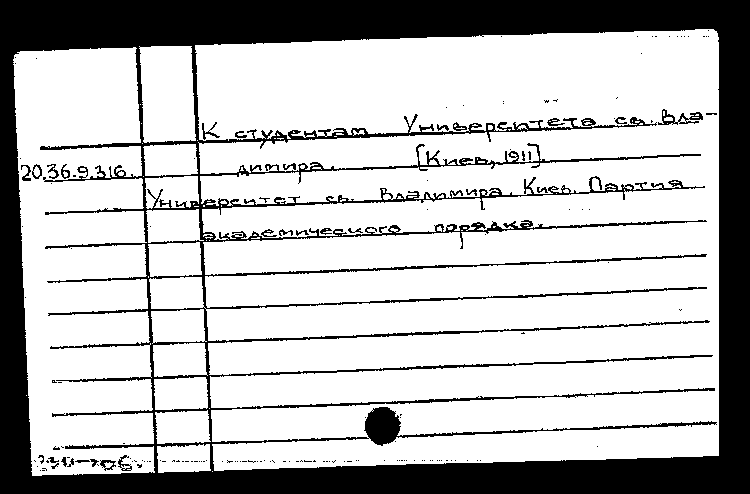 К студентам Университета св. Вла-
20.36.9.316. димира. [Киев, 1911].
Университет св. Владимира. Киев. Партия
академического порядка.